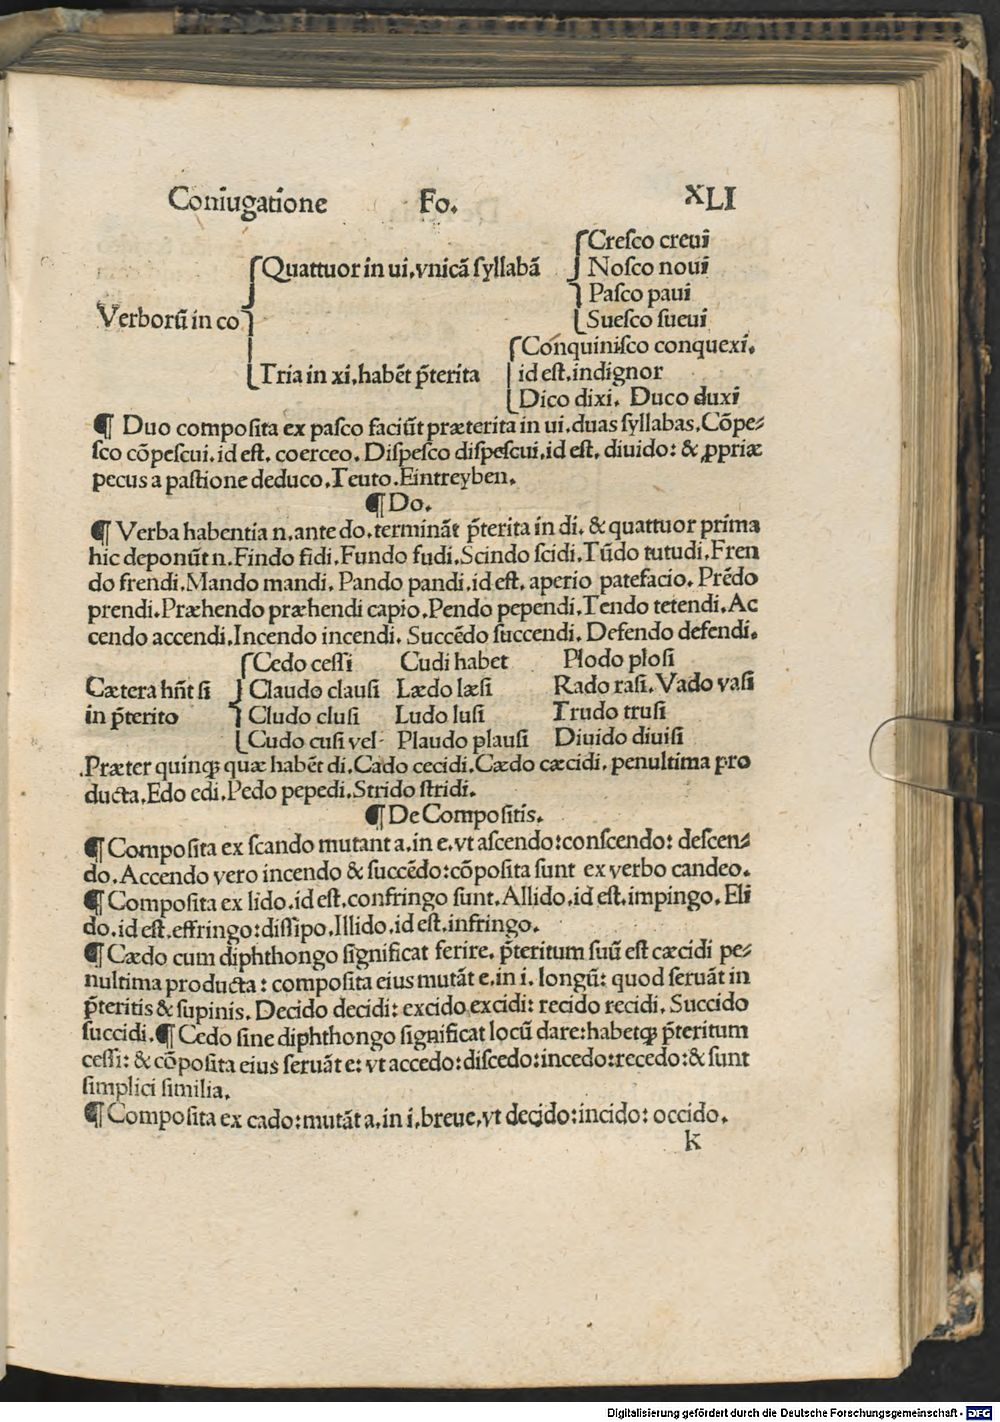 Coniugatione Fo. XLI
Cresco creui
Quattuor in ui, vnicā syllabā Nosco noui
Pasco paui
Verborū in co Suesco sueui
Conquinisco conquexi.
Tria in xi, habēt p̄terita id est, indignor
Dico dixi. Duco duxi
¶ Duo composita ex pasco faciūt præterita in ui, duas syllabas, Cōpe⸗
sco cōpescui, id est, coerceo. Dispesco dispescui, id est, diuido: & ꝓpriæ
pecus a pastione deduco. Teuto. Eintreyben.
¶ Do.
¶ Verba habentia n, ante do, termināt p̄terita in di, & quattuor prima
hic deponūt n. Findo fidi. Fundo fudi. Scindo scidi. Tūdo tutudi. Fren
do frendi. Mando mandi. Pando pandi, id est, aperio patefacio. Prēdo
prendi. Præhendo præhendi capio. Pendo pependi. Tendo tetendi. Ac
cendo accendi. Incendo incendi. Succēdo succendi. Defendo defendi.
Cedo cessi Cudi habet Plodo plosi
Cætera hn̄t si Claudo clausi Lædo læsi Rado rasi. Vado vasi
in p̄terito Cludo clusi Ludo lusi Trudo trusi
Cudo cusi vel Plaudo plausi Diuido diuisi
Præter quinqꝫ quæ habēt di. Cado cecidi. Cædo cæcidi, penultima pro
ducta. Edo edi. Pedo pepedi. Strido stridi.
¶ De Compositis.
¶ Composita ex scando mutant a, in e, vt ascendo: conscendo: descen⸗
do. Accendo vero incendo & succēdo: cōposita sunt ex verbo candeo.
¶ Composita ex lido, id est, confringo sunt. Allido, id est, impingo. Eli
do, id est, effringo: dissipo. Illido, id est, infringo.
¶ Cædo cum diphthongo significat ferire, p̄teritum suū est cæcidi pe⸗
nultima producta: composita eius mutāt e, in i, longū: quod seruāt in
p̄teritis & supinis. Decido decidi: excido excidi: recido recidi. Succido
succidi. ¶ Cedo sine diphthongo significat locū dare: habetqꝫ p̄teritum
cessi: & cōposita eius seruāt e: vt accedo: discedo: incedo: recedo: & sunt
simplici similia.
¶ Composita ex cado: mutāt a, in i, breue, vt decido: incido: occido.
k
Digitalisierung gefördert durch die Deutsche Forschungsgemeinschaft - DFG